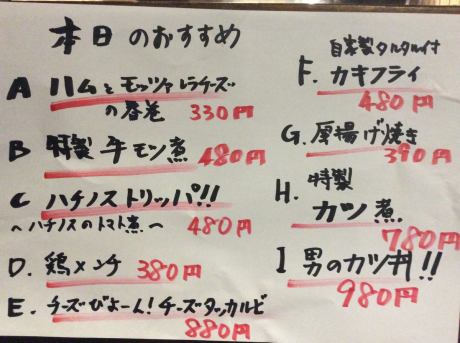 本日のおすすめ
A ハムとモッツァレラチーズ
の春巻 330円
B 特製 牛モツ煮 480円
C ハチノストリッパ!!
〜ハチノスのトマト煮〜 480円
D. 鶏メンチ 380円
E. チーズびよーん!チーズタッカルビ
880円
自家製タルタル付
F. カキフライ
480円
G. 厚揚げ焼き
390円
H. 特製
カツ煮
780円
I 男のカツ丼!!
980円